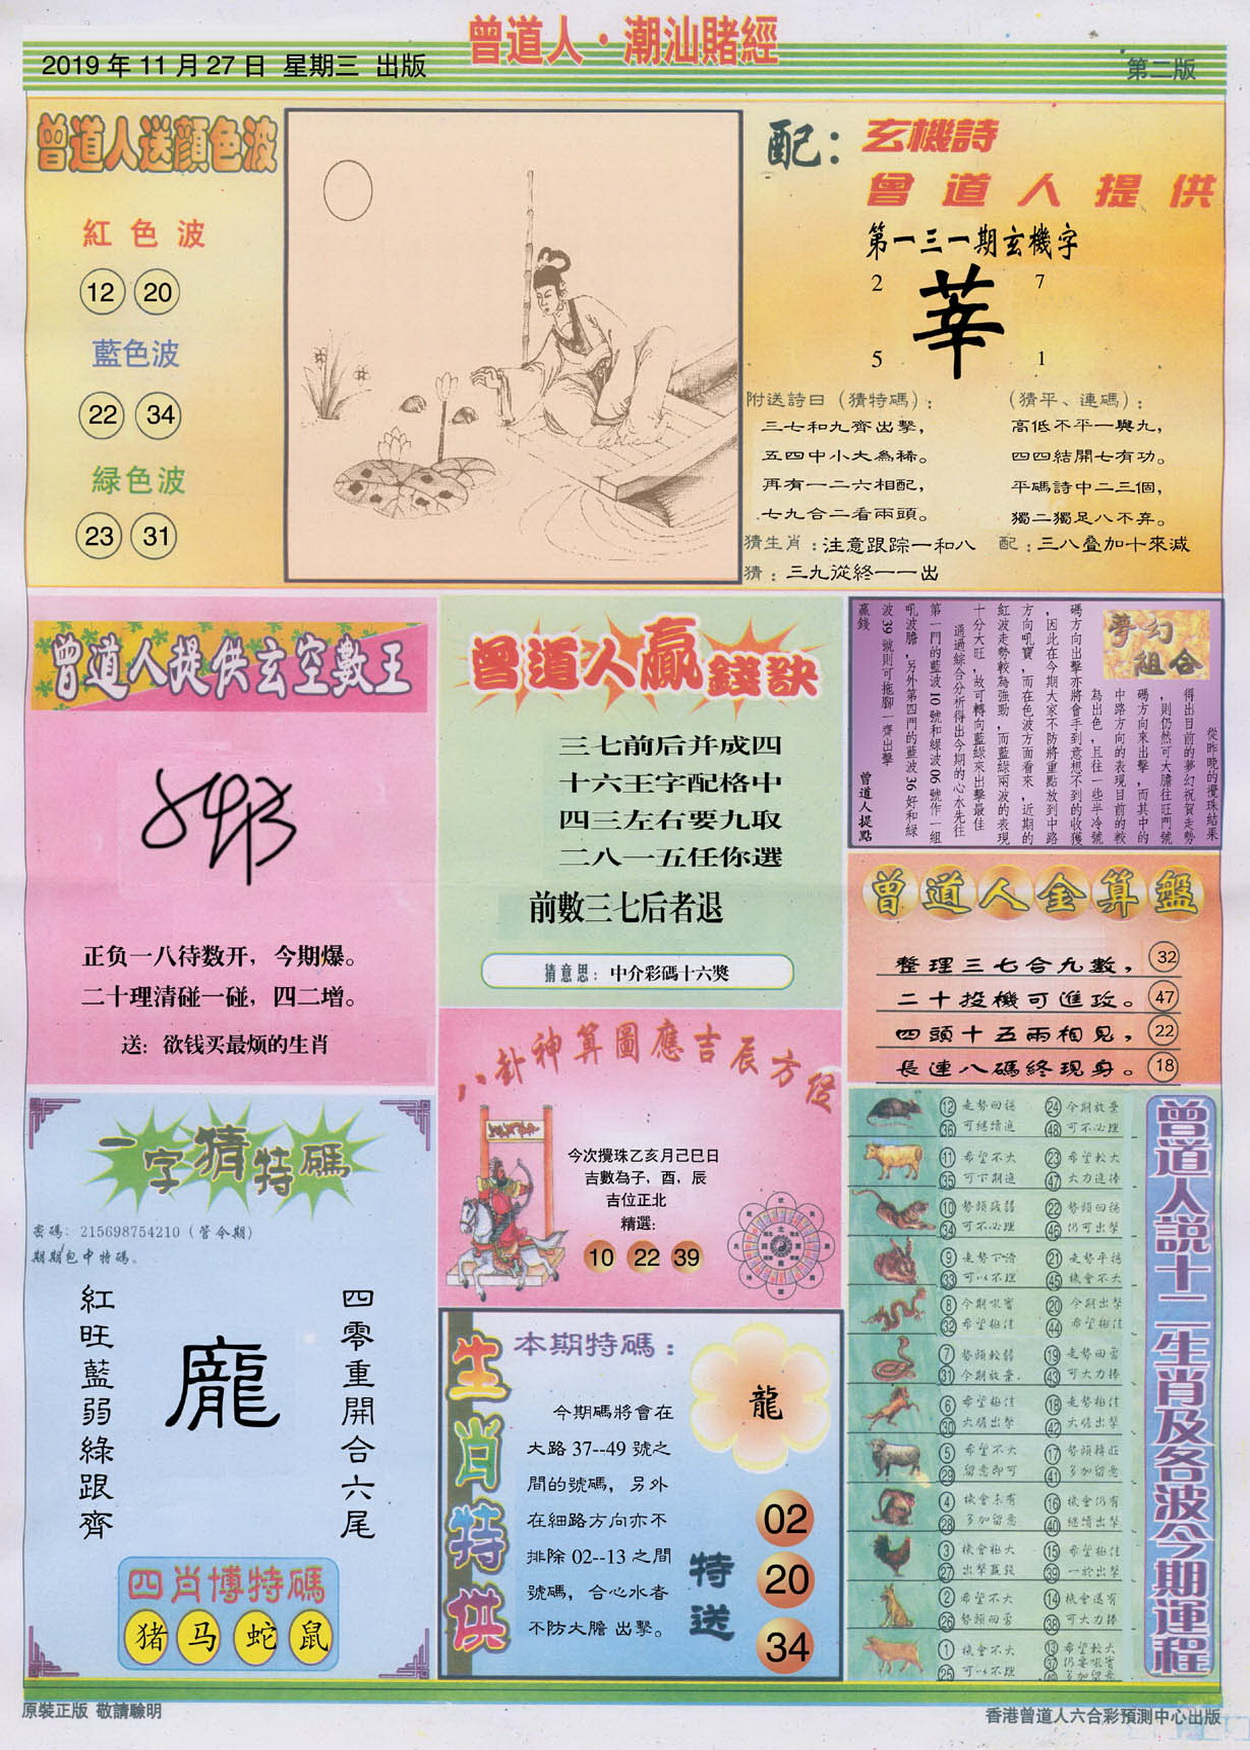 曾道人·潮汕賭經
2019年11月27日 星期三 出版
第二版
曾道人送顔色波
紅色波
12 20
藍色波
22 34
緑色波
23 31
配：
玄機詩
曾道人提供
第一三一期玄機字
2 7
莘
5 1
附送詩曰（猜特碼）：
三七和九齊出擊，
五四中小大為稀。
再有一二六相配，
七九合二看兩頭。
（猜平、連碼）：
高低不平一與九，
四四結開七有功。
平碼詩中二三個，
獨二獨足八不弃。
猜生肖：注意跟踪一和八
配：三八叠加十來減
猜：三九從終一一出
曾道人提供玄空數王
正负一八待数开，今期爆。
二十理清碰一碰，四二增。
送：欲钱买最烦的生肖
曾道人贏錢訣
三七前后并成四
十六王字配格中
四三左右要九取
二八一五任你選
前數三七后者退
猜意思：中介彩碼十六獎
夢幻組合
從昨晚的攪珠結果
得出目前的夢幻祝賀走勢
，則仍然可大膽往旺門號
碼方向來出擊，而其中的
中路方向的表現目前的較
為出色，且往一些半冷號
碼方向出擊亦將會手到意想不到的收獲
，因此在今期大家不防將重點放到中路
方向吼寶，而在色波方面看來，近期的
紅波走勢較為強勁，而藍綠兩波的表現
十分大旺，故可轉向藍綠來出擊最佳
通過綜合分析得出今期的心水先往
第一門的藍波10號和綠波06號作一組
吼波膽，另外第四門的藍波36好和綠
波39號則可拖腳一齊出擊
贏錢
曾道人提點
曾道人金算盤
整理三七合九數， 32
二十投機可進攻。 47
四頭十五兩相見， 22
長連八碼終現身。 18
一字猜特碼
密碼：215698754210（管今期）
期期包中特碼。
紅旺藍弱綠跟齊
龐
四零重開合六尾
四肖博特碼
猪 马 蛇 鼠
八卦神算圖應吉辰方位
今次攪珠乙亥月己巳日
吉數為子，酉，辰
吉位正北
精選：
10 22 39
生肖特供
本期特碼：
龍
今期碼將會在
大路37--49號之
間的號碼，另外
在細路方向亦不
排除02--13之間
號碼，合心水者
不防大膽出擊。
特送
02
20
34
曾道人說十二生肖及各波今期運程
12 走勢回穩 24 今期放棄
36 可繼續追 48 可不必理
11 希望不大 23 希望較大
35 可下期追 47 大力追捧
10 勢頭疲弱 22 勢頭回穩
34 可不必理 46 仍可出擊
9 走勢下滑 21 走勢平穩
33 可以不理 45 機會不大
8 今期吼實 20 今期出擊
32 希望極佳 44 希望極佳
7 勢頭較弱 19 走勢回靈
31 今期放棄. 43 可大力捧
6 希望極佳 18 走勢極佳
30 大膽出擊 42 大膽出擊
5 希望不大 17 勢頭轉旺
29 留意即可 41 多加留意
4 機會未有 16 機會仍有
28 多加留意 40 繼續出擊
3 機會極大 15 希望極佳
27 出擊 39 一於出擊
2 希望不大 14 機會還有
26 勢頭回靈 38 可大力捧
1 機會不大 13 希望較大
25 可以不理 37 仍要吼實
多加留意
原裝正版 敬請驗明
香港曾道人六合彩預測中心出版